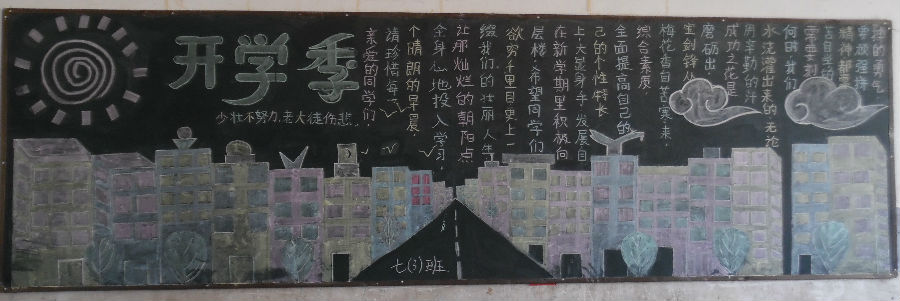 开学季
少壮不努力,老大徒伤悲.
亲爱的同学们,
请珍惜每一
个晴朗的早晨.
全身心地投入学习
让那灿烂的朝阳点
缀我们的壮丽人生
欲穷千里目更上一
层楼.希望同学们
在新学期里积极向
上大显身手发展自
己的个性特长
全面提高自己的
综合素质
梅花香自苦寒来.
宝剑锋从
磨砺出
成功之花是
用辛勤的汗
水浇灌出来的无论
何时我们
需要刻
精神都需
要顽强拼
的勇气
七(3)班